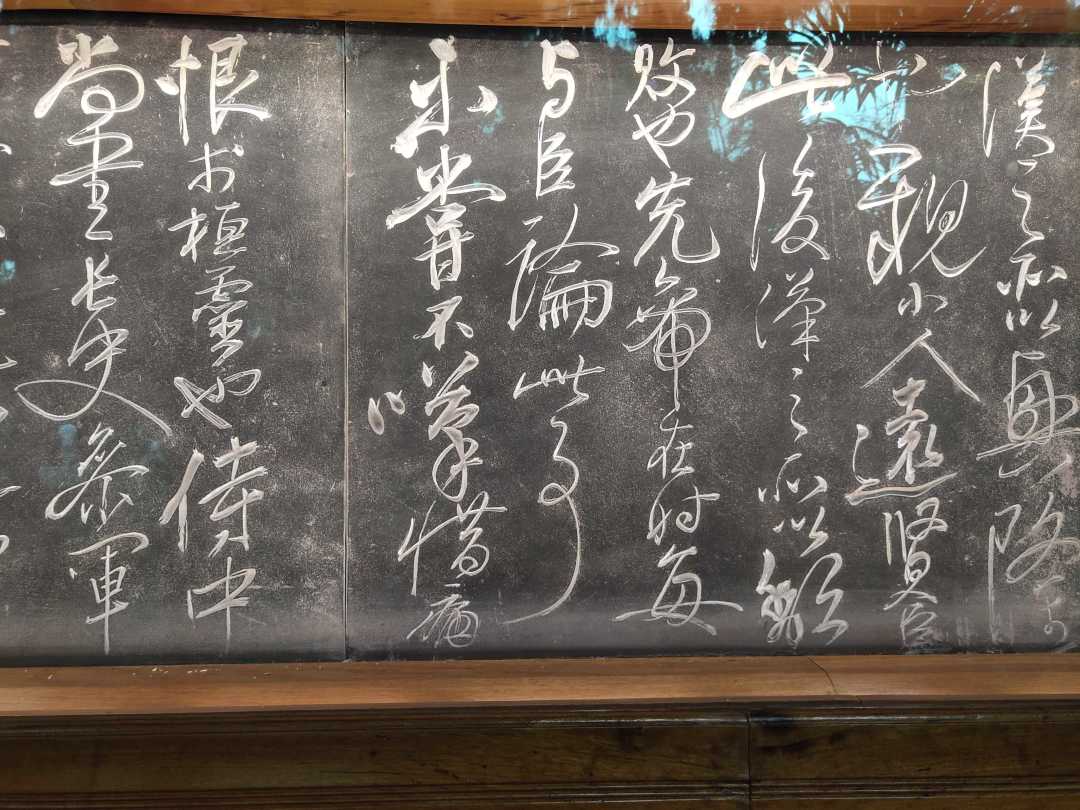 漢之所以興隆
也親小人遠賢臣
此後漢之所以傾
頹也先帝在时每
与臣論此事
未嘗不嘆惜痛
恨於桓靈也侍中
尚書長史參軍